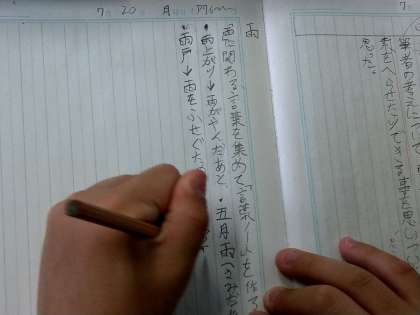 筆者の考えについて
をへらせたりできる事を思い
思った。
7 20 月
雨
雨に関わる言葉を集めて「言葉ノートを作ろ
・雨上がり→雨がやんだあと、・五月雨(さみだれ
・雨戸→雨をふせぐため